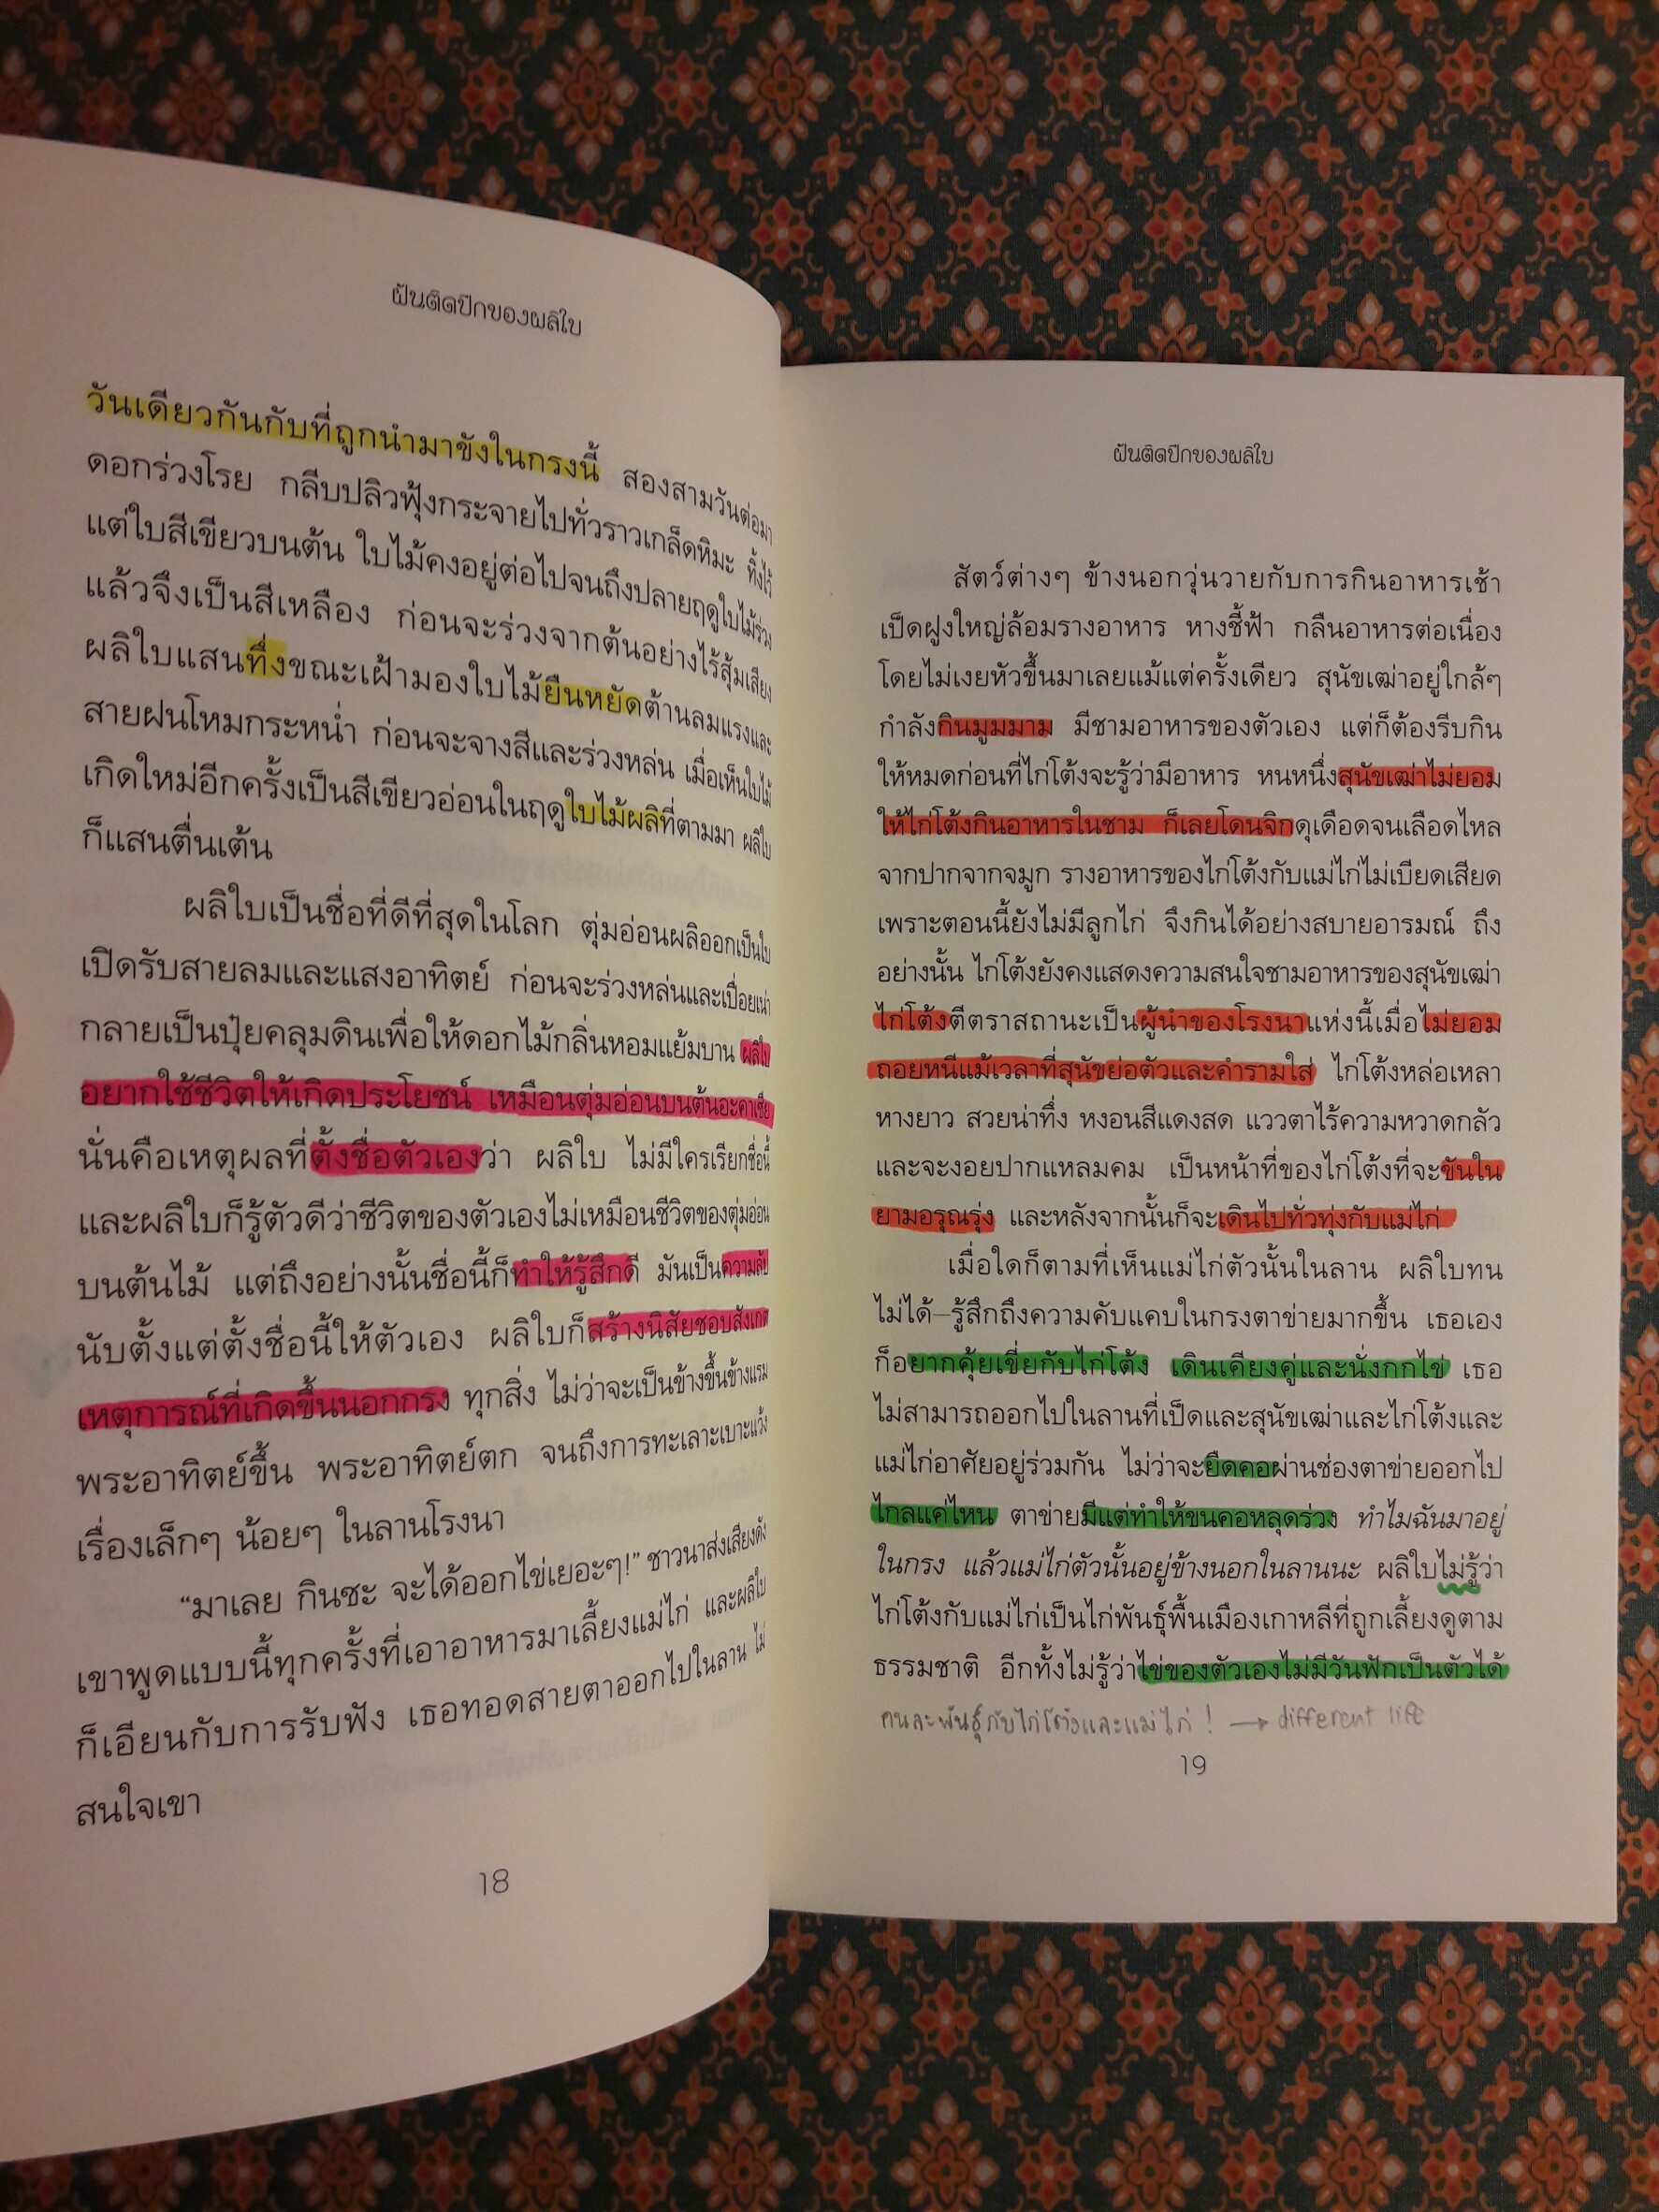 ฝันติดปีกของผลิใบ
วันเดียวกันกับที่ถูกนำมาขังในกรงนี้ สองสามวันต่อมา
ดอกร่วงโรย กลีบปลิวฟุ้งกระจายไปทั่วราวเกล็ดหิมะ ทิ้งไว้
แต่ใบสีเขียวบนต้น ใบไม้คงอยู่ต่อไปจนถึงปลายฤดูใบไม้ร่วง
แล้วจึงเป็นสีเหลือง ก่อนจะร่วงจากต้นอย่างไร้สุ้มเสียง
ผลิใบแสนทึ่งขณะเฝ้ามองใบไม้ยืนหยัดต้านลมแรงและ
สายฝนโหมกระหน่ำ ก่อนจะจางสีและร่วงหล่น เมื่อเห็นใบไม้
เกิดใหม่อีกครั้งเป็นสีเขียวอ่อนในฤดูใบไม้ผลิที่ตามมา ผลิใบ
ก็แสนตื่นเต้น
ผลิใบเป็นชื่อที่ดีที่สุดในโลก ตุ่มอ่อนผลิออกเป็นใบ
เปิดรับสายลมและแสงอาทิตย์ ก่อนจะร่วงหล่นและเปื่อยเน่า
กลายเป็นปุ๋ยคลุมดินเพื่อให้ดอกไม้กลิ่นหอมแย้มบาน ผลิใบ
อยากใช้ชีวิตให้เกิดประโยชน์ เหมือนตุ่มอ่อนบนต้นอะคาเซีย
นั่นคือเหตุผลที่ตั้งชื่อตัวเองว่า ผลิใบ ไม่มีใครเรียกชื่อนี้
และผลิใบก็รู้ตัวดีว่าชีวิตของตัวเองไม่เหมือนชีวิตของตุ่มอ่อน
บนต้นไม้ แต่ถึงอย่างนั้นชื่อนี้ก็ทำให้รู้สึกดี มันเป็นความลับ
นับตั้งแต่ตั้งชื่อนี้ให้ตัวเอง ผลิใบก็สร้างนิสัยชอบสังเกต
เหตุการณ์ที่เกิดขึ้นนอกกรง ทุกสิ่ง ไม่ว่าจะเป็นข้างขึ้นข้างแรม
พระอาทิตย์ขึ้น พระอาทิตย์ตก จนถึงการทะเลาะเบาะแว้ง
เรื่องเล็กๆ น้อยๆ ในลานโรงนา
“มาเลย กินซะ จะได้ออกไข่เยอะๆ!” ชาวนาส่งเสียงดัง
เขาพูดแบบนี้ทุกครั้งที่เอาอาหารมาเลี้ยงแม่ไก่ และผลิใบ
ก็เอียนกับการรับฟัง เธอทอดสายตาออกไปในลาน ไม่
สนใจเขา
18
ฝันติดปีกของผลิใบ
สัตว์ต่างๆ ข้างนอกวุ่นวายกับการกินอาหารเช้า
เป็ดฝูงใหญ่ล้อมรางอาหาร หางชี้ฟ้า กลืนอาหารต่อเนื่อง
โดยไม่เงยหัวขึ้นมาเลยแม้แต่ครั้งเดียว สุนัขเฒ่าอยู่ใกล้ๆ
กำลังกินมูมมาม มีชามอาหารของตัวเอง แต่ก็ต้องรีบกิน
ให้หมดก่อนที่ไก่โต้งจะรู้ว่ามีอาหาร หนหนึ่งสุนัขเฒ่าไม่ยอม
ให้ไก่โต้งกินอาหารในชาม ก็เลยโดนจิกดุเดือดจนเลือดไหล
จากปากจากจมูก รางอาหารของไก่โต้งกับแม่ไก่ไม่เบียดเสียด
เพราะตอนนี้ยังไม่มีลูกไก่ จึงกินได้อย่างสบายอารมณ์ ถึง
อย่างนั้น ไก่โต้งยังคงแสดงความสนใจชามอาหารของสุนัขเฒ่า
ไก่โต้งตีตราสถานะเป็นผู้นำของโรงนาแห่งนี้เมื่อไม่ยอม
ถอยหนีแม้เวลาที่สุนัขย่อตัวและคำรามใส่ ไก่โต้งหล่อเหลา
หางยาว สวยน่าทึ่ง หงอนสีแดงสด แววตาไร้ความหวาดกลัว
และจะงอยปากแหลมคม เป็นหน้าที่ของไก่โต้งที่จะขันใน
ยามอรุณรุ่ง และหลังจากนั้นก็จะเดินไปทั่วทุ่งกับแม่ไก่
เมื่อใดก็ตามที่เห็นแม่ไก่ตัวนั้นในลาน ผลิใบทน
ไม่ได้—รู้สึกถึงความคับแคบในกรงตาข่ายมากขึ้น เธอเอง
ก็อยากคุ้ยเขี่ยกับไก่โต้ง เดินเคียงคู่และนั่งกกไข่ เธอ
ไม่สามารถออกไปในลานที่เป็ดและสุนัขเฒ่าและไก่โต้งและ
แม่ไก่อาศัยอยู่ร่วมกัน ไม่ว่าจะยืดคอผ่านช่องตาข่ายออกไป
ไกลแค่ไหน ตาข่ายมีแต่ทำให้ขนคอหลุดร่วง ทำไมฉันมาอยู่
ในกรง แล้วแม่ไก่ตัวนั้นอยู่ข้างนอกในลานนะ ผลิใบไม่รู้ว่า
ไก่โต้งกับแม่ไก่เป็นไก่พันธุ์พื้นเมืองเกาหลีที่ถูกเลี้ยงดูตาม
ธรรมชาติ อีกทั้งไม่รู้ว่าไข่ของตัวเองไม่มีวันฟักเป็นตัวได้
คนละพันธุ์กับไก่โต้งและแม่ไก่ ! → different life
19